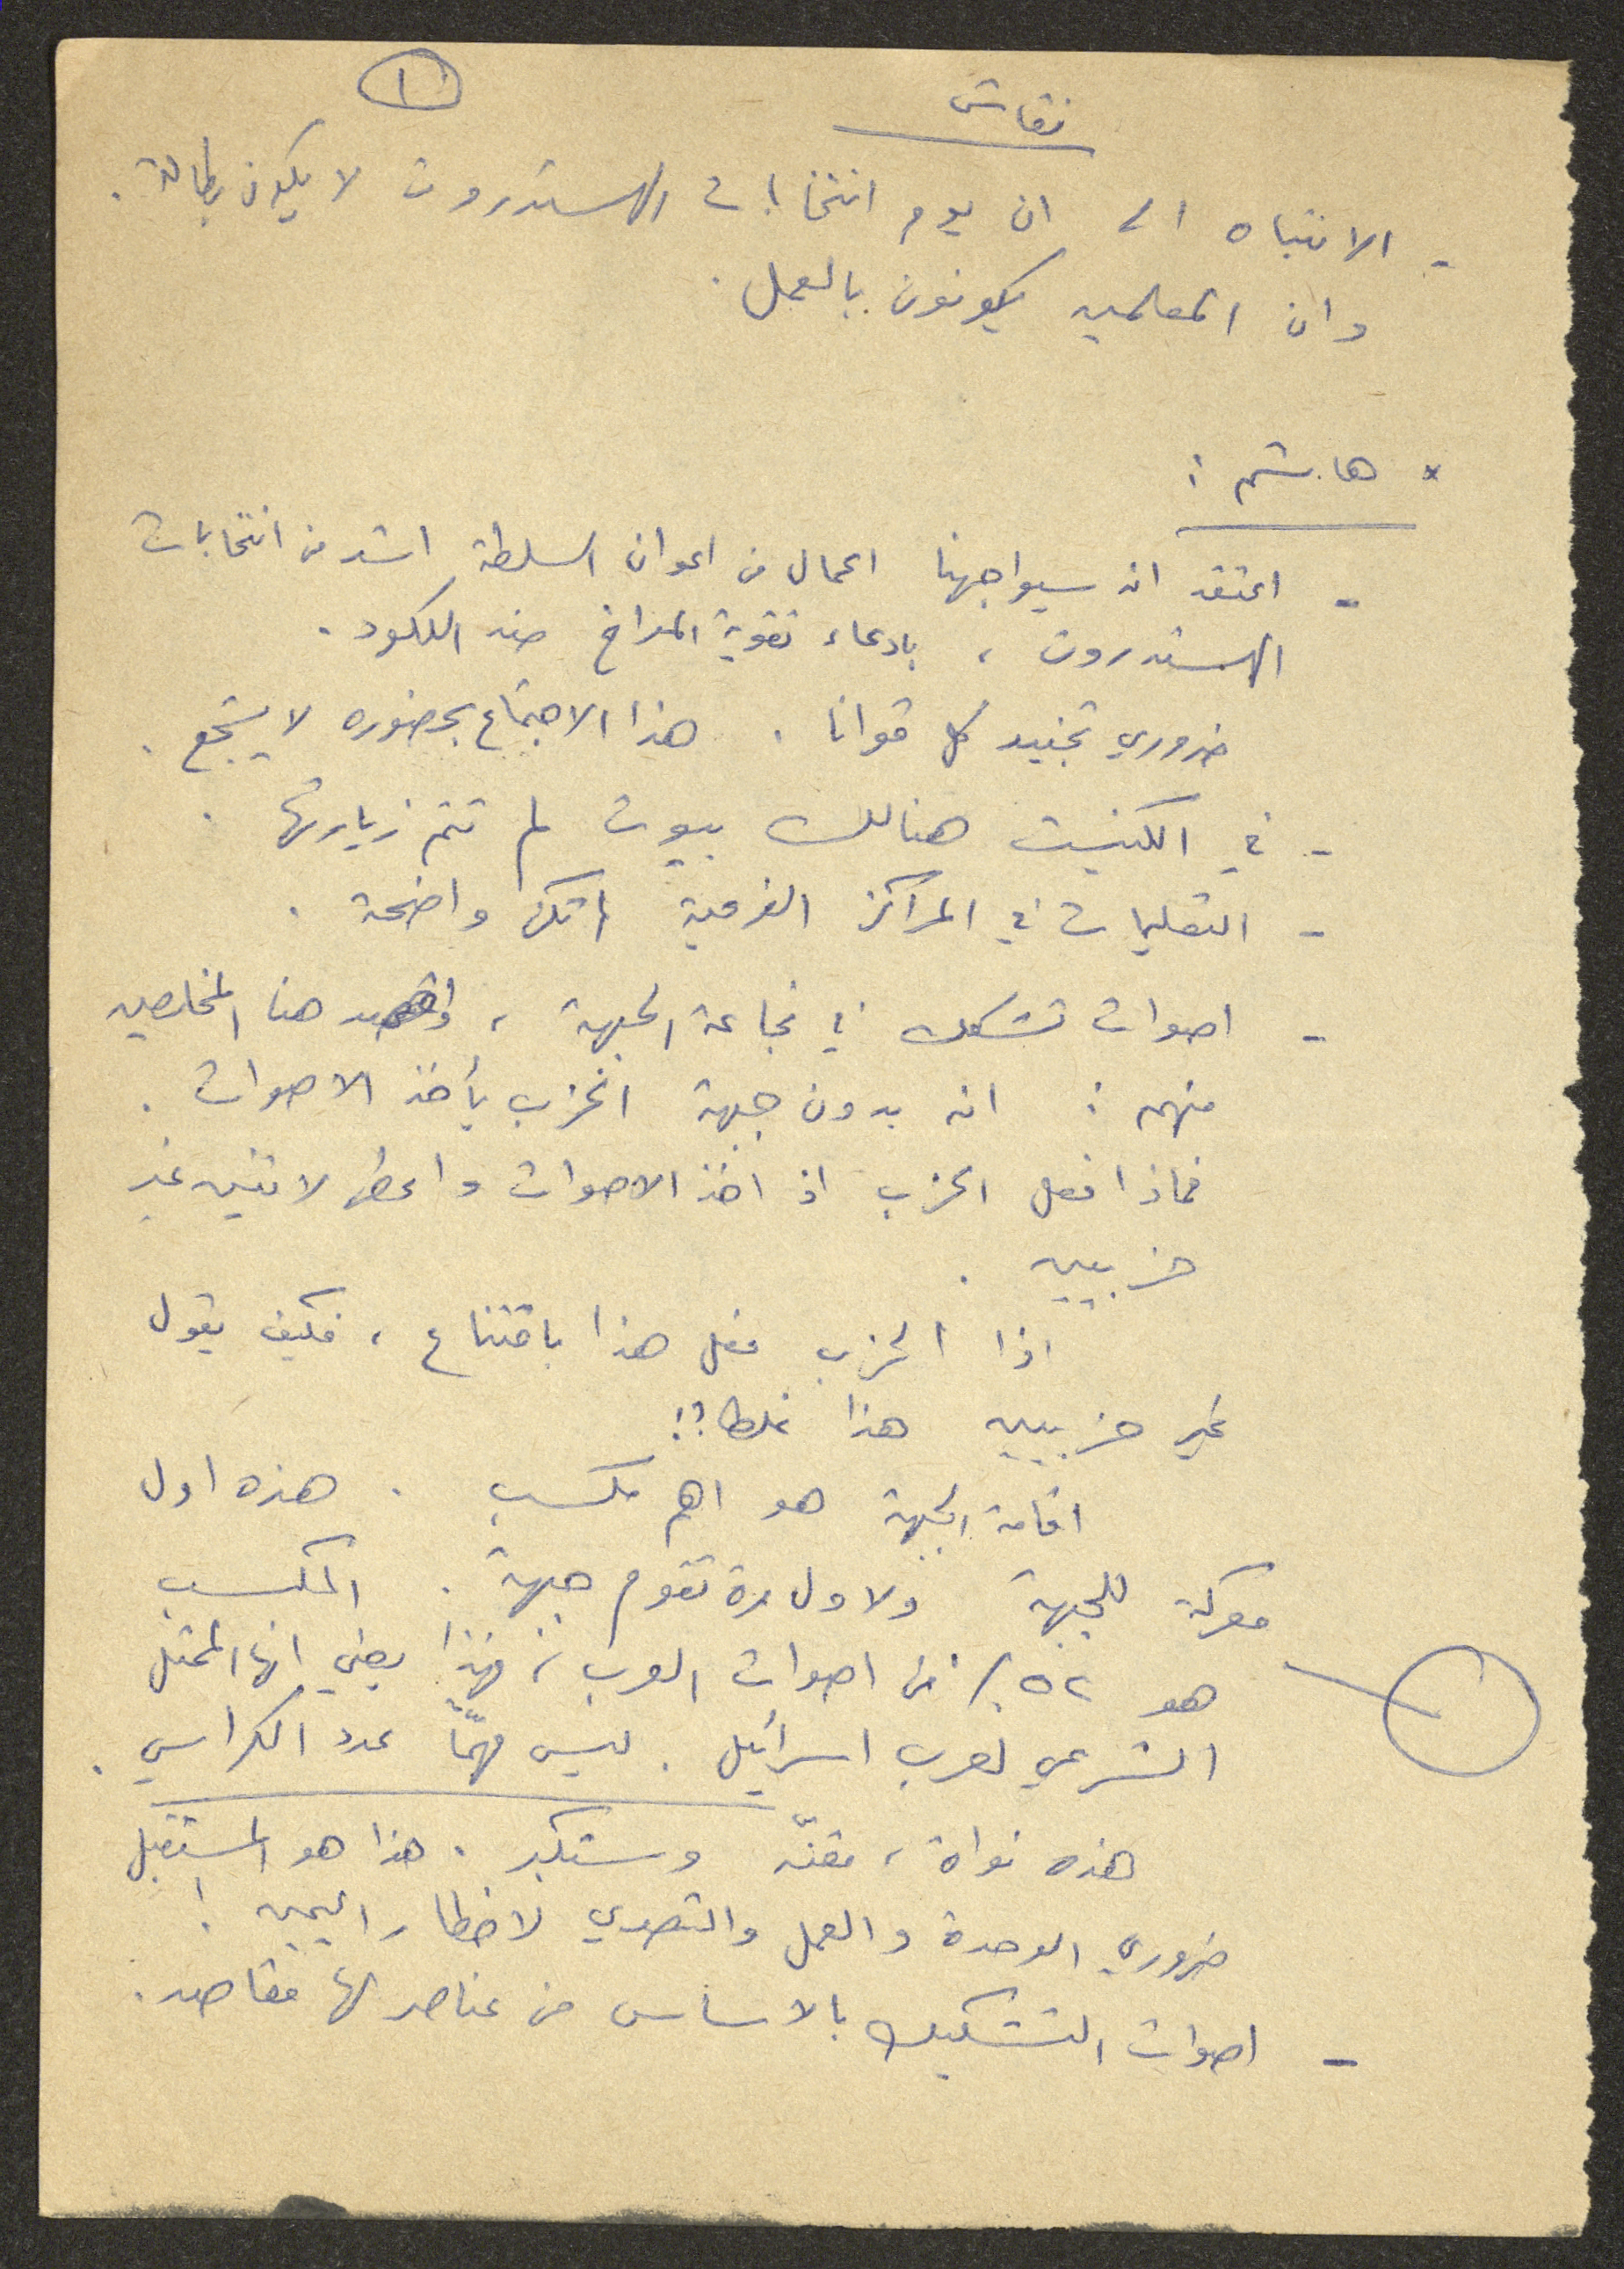 نقاش
١
- الانتباه الى ان يوم انتخابات الهستدروت لا يكون بطالة .
وان المعلمين يكونون بالعمل .
× هاشم :
- اعتقد انه سيواجهنا اعمال من اعوان السلطة اشد من انتخابات
الهستدروت ، بادعاء تقوية المعراخ ضد الليكود .
ضروري تجنيد كل قوانا . هذا الاجتماع بحضوره لا يشجع .
- في الكنيست هنالك بيوت لم تتم زيارتها .
- التعليمات في المراكز الفرعية لم تكن واضحة .
- اصوات تشكك في نجاعة الجبهة ، واقصد هنا المخلصين
منهم : انه بدون جبهة الحزب يأخذ الاصوات .
فماذا فعل الحزب اذ اخذ الاصوات واعطى لاثنين غير
حزبيين .
اذا الحزب فعل هذا باقتناع ، فكيف يقول
غير حزبيين هذا غلط؟!
اقامة الجبهة هو اهم مكسب . هذه اول
معركة للجبهة ولاول مرة تقوم جبهة . المكسب
هو ٥٢٪ من اصوات العرب ، فهذا يعني انها الممثل
الشرعي لعرب اسرائيل . ليس مهمًا عدد الكراسي .
هذه نواة ، وستكبر . هذا هو المستقبل
ضروري الوحدة والعمل والتصدي لاخطار اليمين !
- اصوات التشكيك بالاساس من عناصر لها مقاصد .